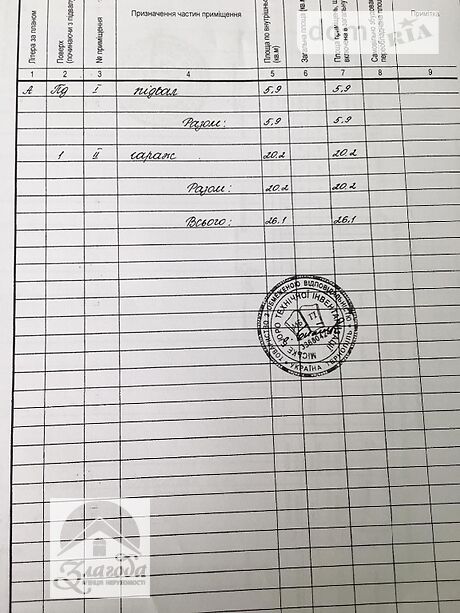 Літера за планом
Поверх (починаючи з підвалу
№ приміщення
Призначення частин приміщення
Площа по внутрішньо (кв.м)
Загальна площа (кв.м
Примітка
1 2 3 4 5 6 7 8 9
А Пд I підвал 5,9 5,9
Разом: 5,9 5,9
1 II гараж 20.2 20.2
Разом: 20.2 20.2
Всього: 26.1 26.1
ТОВАРИСТВО З ОБМЕЖЕНОЮ ВІДПОВІДАЛЬНІСТЮ
МІСЬКЕ БЮРО ТЕХНІЧНОЇ ІНВЕНТАРИЗАЦІЇ
УКРАЇНА ТЕРНОПІЛЬ
dom RIA
Злагода
агенція нерухомості